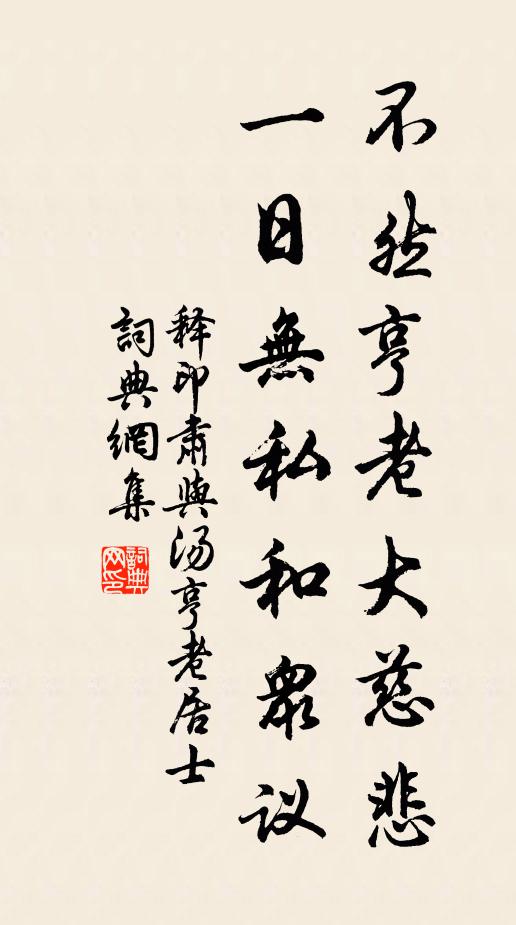 不然亨老大慈悲
一日無私和衆议
释印肃與汤亨老居士
詞典網集
詞典网印